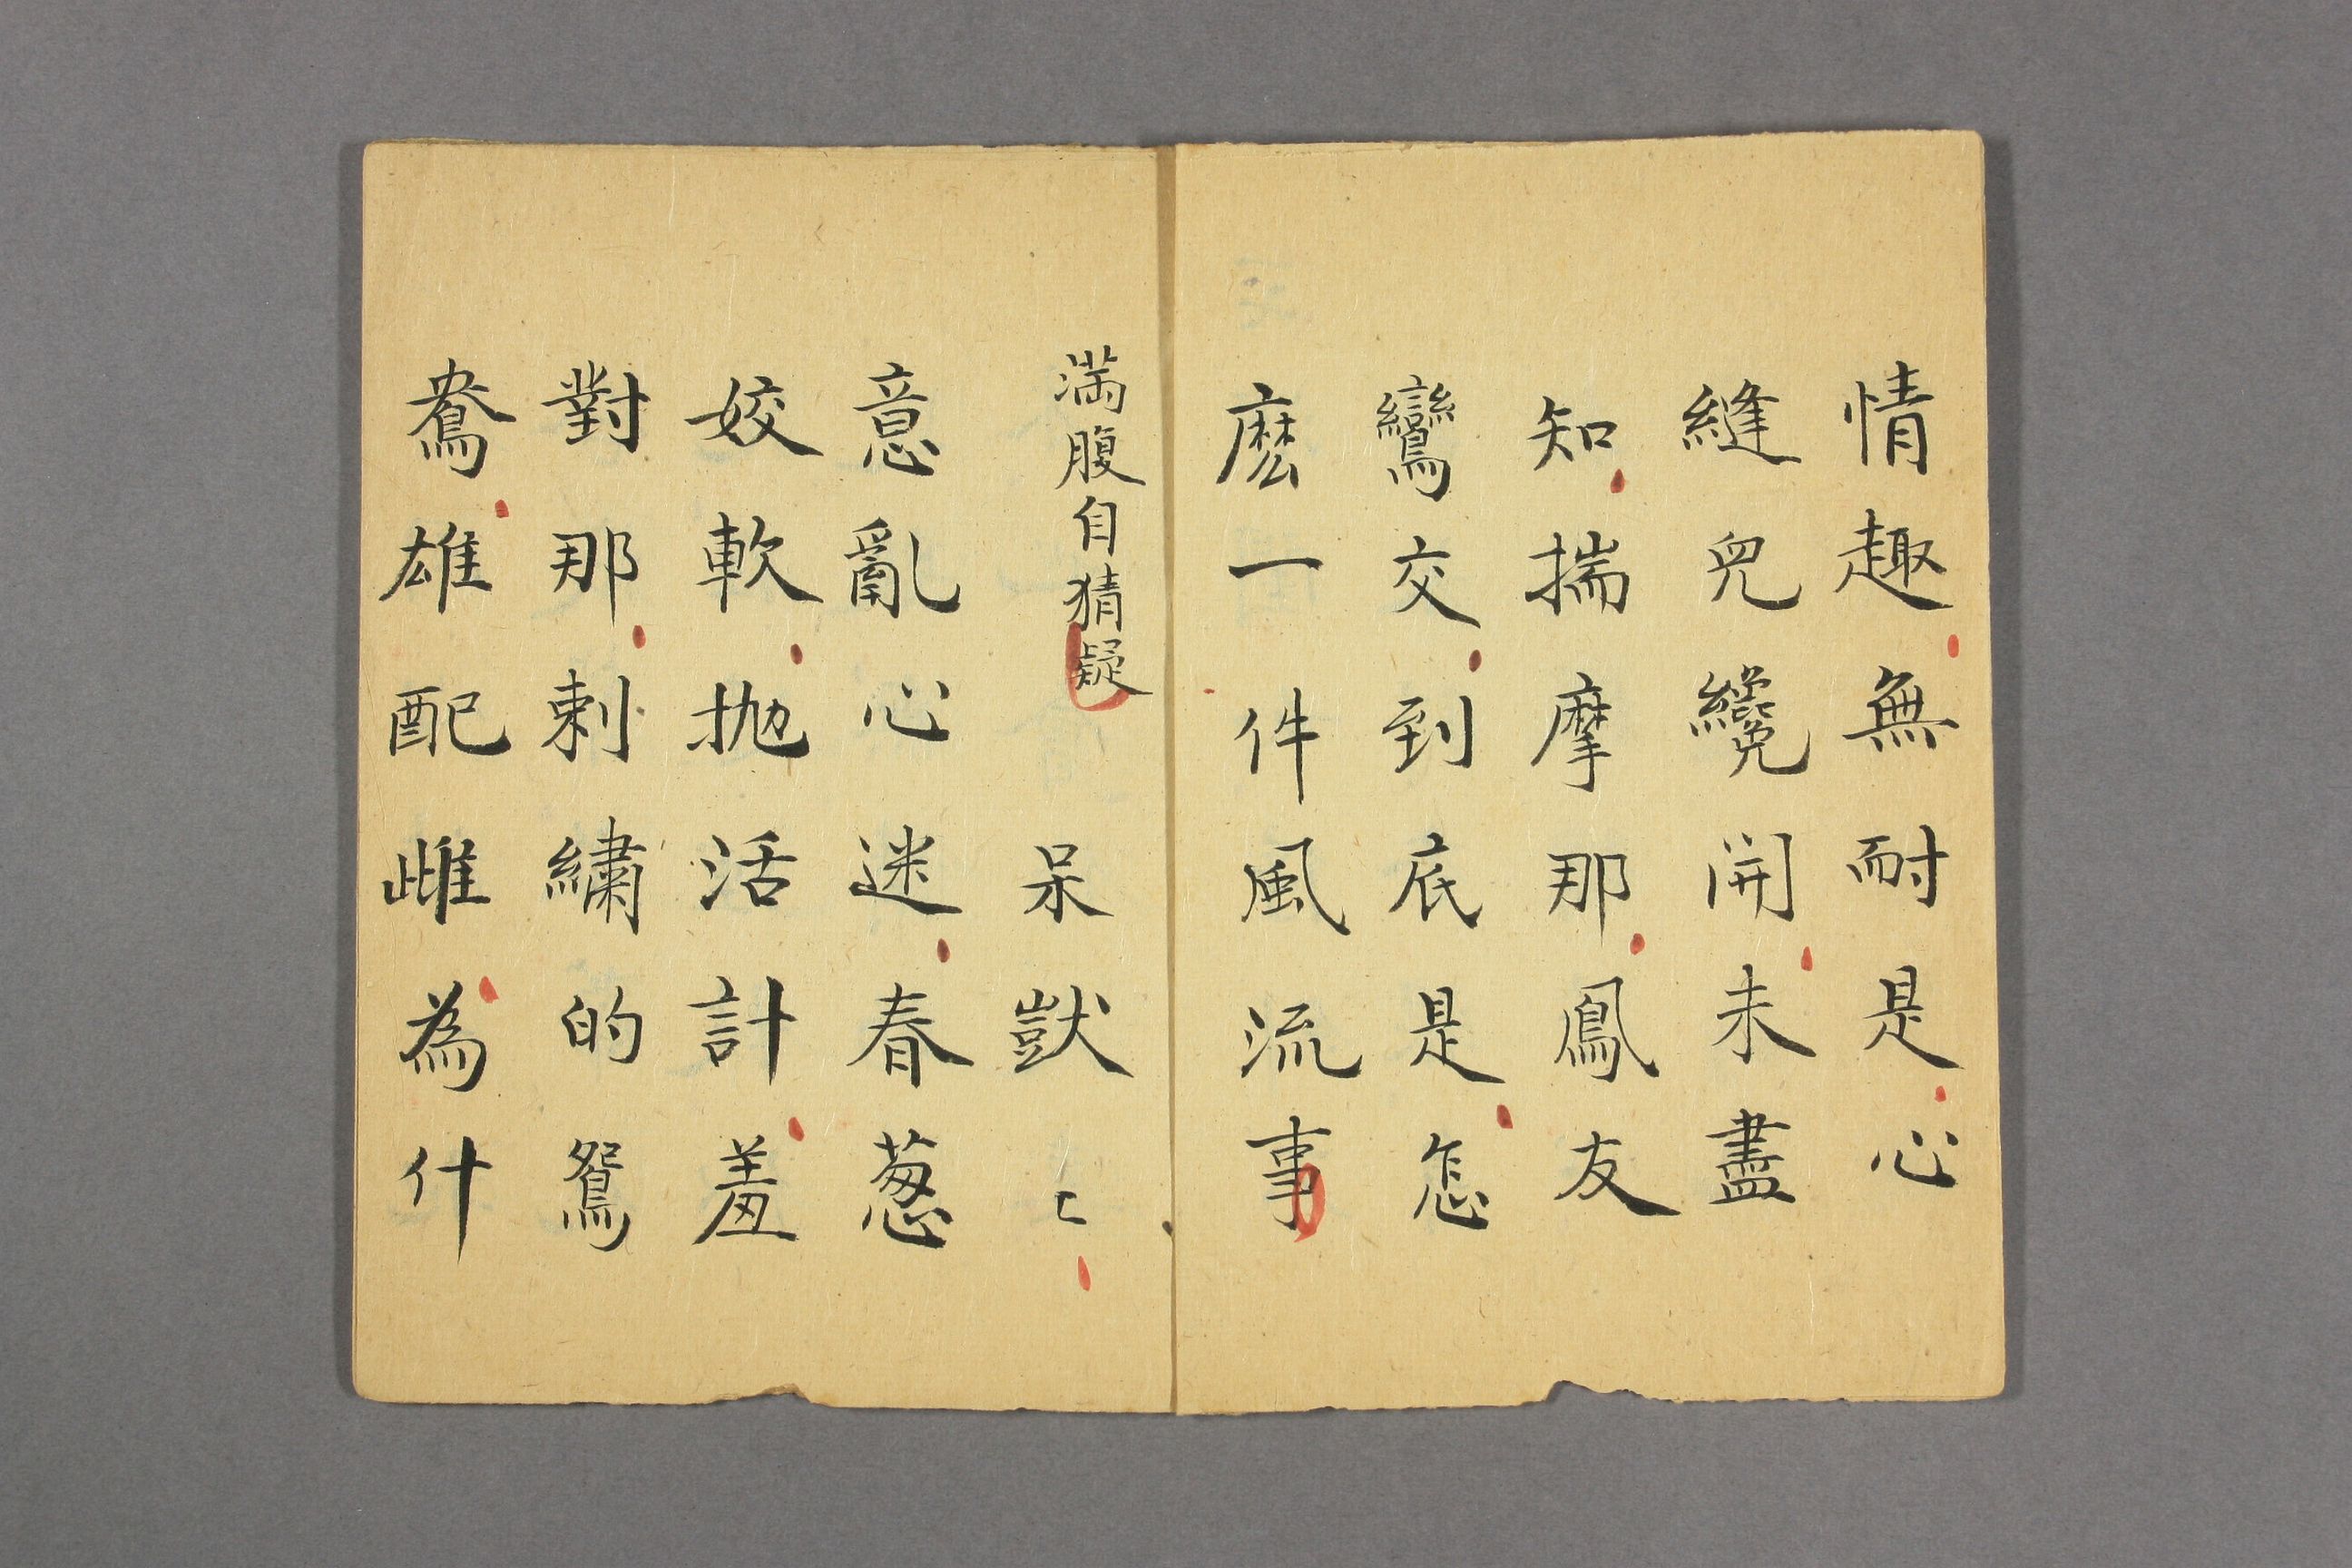 情趣無耐是心
縫兒纔開未盡
知揣摩那鳳友
鸞交到底是怎
麽一件風流事
滿腹自猜疑
呆獃〻
意亂心迷春葱
姣軟抛活計羞
對那刺繡的鴛
鴦雄配雌為什